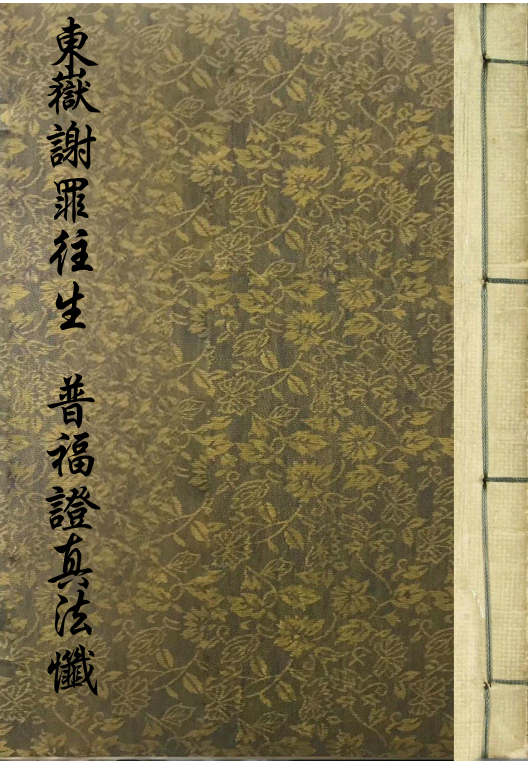 東嶽謝罪往生　普福證真法懺